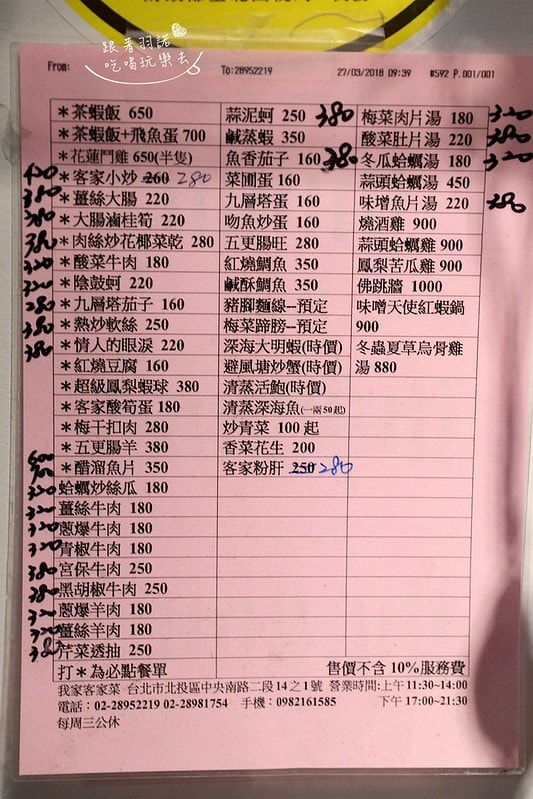 跟著羽諾
吃喝玩樂去
From: To:28952219 27/03/2018 09:39 #592 P.001/001
＊茶蝦飯 650 蒜泥蚵 250 380 梅菜肉片湯 180 320
＊茶蝦飯+飛魚蛋 700 鹹蒸蝦 350 酸菜肚片湯 220 380
＊花蓮鬥雞 650(半隻) 魚香茄子 160 380 冬瓜蛤蠣湯 180 320
420 ＊客家小炒 260 280 菜圃蛋 160 蒜頭蛤蠣湯 450
380 ＊薑絲大腸 220 九層塔蛋 160 味增魚片湯 220 280
280 ＊大腸滷桂筍 220 吻魚炒蛋 160 燒酒雞 900
380 ＊肉絲炒花椰菜乾 280 五更腸旺 280 蒜頭蛤蠣雞 900
320 ＊酸菜牛肉 180 紅燒鯛魚 350 鳳梨苦瓜雞 900
320 ＊陰鼓蚵 220 鹹酥鯛魚 350 佛跳牆 1000
280 ＊九層塔茄子 160 豬腳麵線--預定 味噌天使紅蝦鍋
380 ＊熱炒軟絲 250 梅菜蹄膀--預定 900
380 ＊情人的眼淚 220 深海大明蝦(時價) 冬蟲夏草烏骨雞
＊紅燒豆腐 160 避風塘炒蟹(時價) 湯 880
＊超級鳳梨蝦球 380 清蒸活鮑(時價)
＊客家酸筍蛋 180 清蒸深海魚(一兩50起)
＊梅干扣肉 280 炒青菜 100 起
＊五更腸羊 380 香菜花生 200
＊醋溜魚片 350 客家粉肝 250 280
320 蛤蠣炒絲瓜 180
320 薑絲牛肉 180
320 蔥爆牛肉 180
320 青椒牛肉 180
380 宮保牛肉 250
380 黑胡椒牛肉 250
320 蔥爆羊肉 180
320 薑絲羊肉 180
380 芹菜透抽 250
打＊為必點餐單 售價不含 10%服務費
我家客家菜 台北市北投區中央南路二段14之1號 營業時間:上午11:30~14:00
電話：02-28952219 02-28981754 手機：0982161585 下午 17:00~21:30
每周三公休